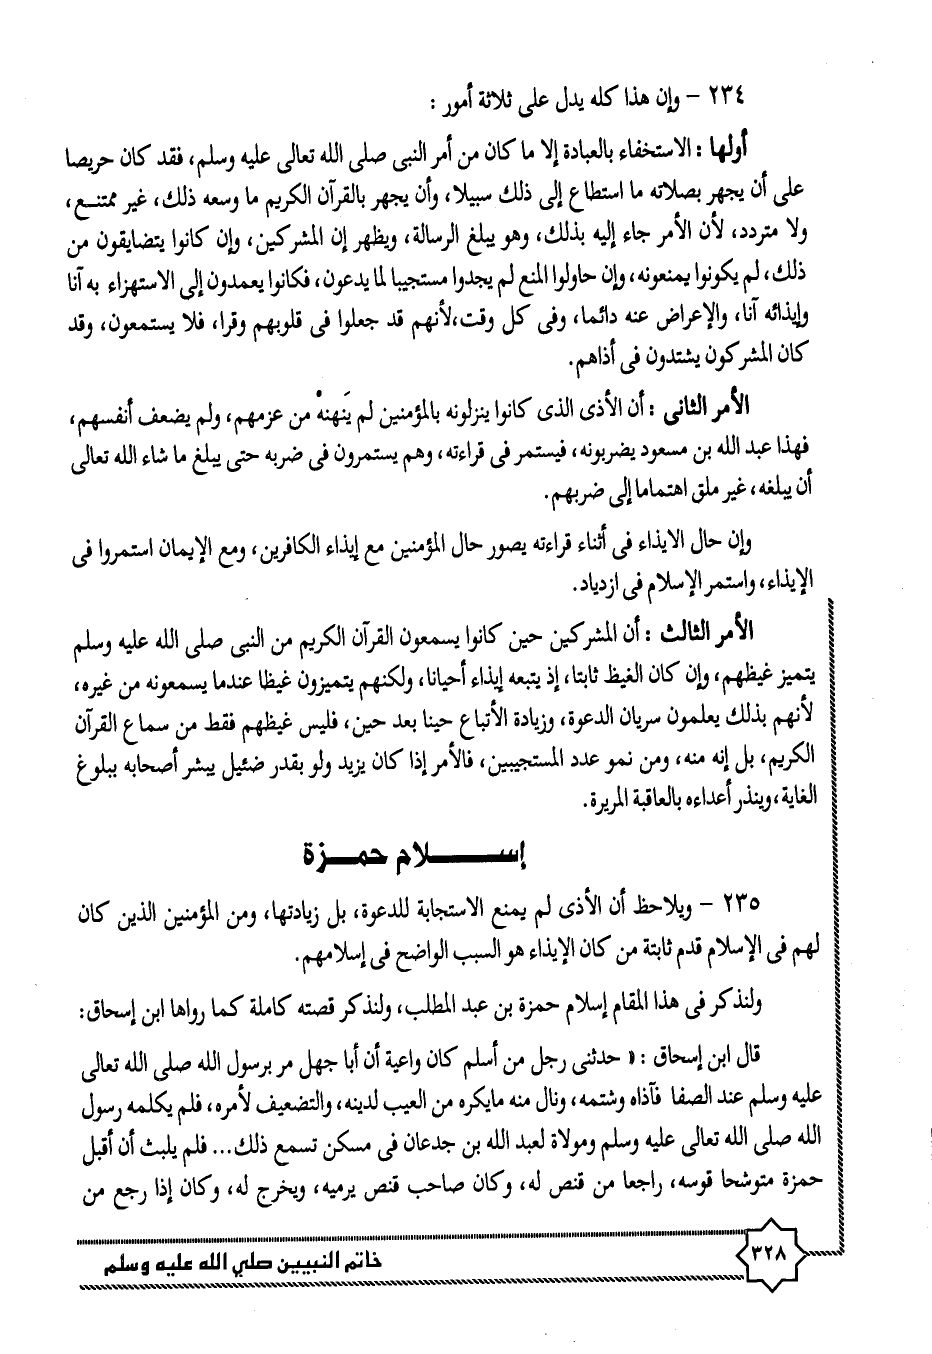 ٢٣٤ - وإن هذا كله يدل على ثلاثة أمور :
أولها : الاستخفاء بالعبادة إلا ما كان من أمر النبى صلى الله تعالى عليه وسلم، فقد كان حريصا
على أن يجهر بصلاته ما استطاع إلى ذلك سبيلا، وأن يجهر بالقرآن الكريم ما وسعه ذلك، غير ممتنع،
ولا متردد، لأن الأمر جاء إليه بذلك، وهو يبلغ الرسالة، ويظهر إن المشركين، وإن كانوا يتضايقون من
ذلك، لم يكونوا يمنعونه، وإن حاولوا المنع لم يجدوا مستجيبا لما يدعون، فكانوا يعمدون إلى الاستهزاء به آنا
وإيذائه آنا، والإعراض عنه دائما، وفى كل وقت،لأنهم قد جعلوا فى قلوبهم وقرا، فلا يستمعون، وقد
كان المشركون يشتدون فى أذاهم.
الأمر الثانى : أن الأذى الذى كانوا ينزلونه بالمؤمنين لم يَنهنهْ من عزمهم، ولم يضعف أنفسهم،
فهذا عبد الله بن مسعود يضربونه، فيستمر فى قراءته، وهم يستمرون فى ضربه حتى يبلغ ما شاء الله تعالى
أن يبلغه، غير ملق اهتماما إلى ضربهم.
وإن حال الايذاء فى أثناء قراءته يصور حال المؤمنين مع إيذاء الكافرين، ومع الإيمان استمروا فى
الإيذاء، واستمر الإسلام فى ازدياد.
الأمر الثالث : أن المشركين حين كانوا يسمعون القرآن الكريم من النبى صلى الله عليه وسلم
يتميز غيظهم، وإن كان الغيظ ثابتا، إذ يتبعه إيذاء أحيانا، ولكنهم يتميزون غيظا عندما يسمعونه من غيره،
لأنهم بذلك يعلمون سريان الدعوة، وزيادة الأتباع حينا بعد حين، فليس غيظهم فقط من سماع القرآن
الكريم، بل إنه منه، ومن نمو عدد المستجيبين، فالأمر إذا كان يزيد ولو بقدر ضئيل يبشر أصحابه ببلوغ
الغاية،وينذر أعداءه بالعاقبة المريرة.
إســـلام حمـــزة
٢٣٥ - ويلاحظ أن الأذى لم يمنع الاستجابة للدعوة، بل زيادتها، ومن المؤمنين الذين كان
لهم فى الإسلام قدم ثابتة من كان الإيذاء هو السبب الواضح فى إسلامهم.
ولنذكر فى هذا المقام إسلام حمزة بن عبد المطلب، ولنذكر قصته كاملة كما رواها ابن إسحاق:
قال ابن إسحاق : « حدثنى رجل من أسلم كان واعية أن أبا جهل مر برسول الله صلى الله تعالى
عليه وسلم عند الصفا فآذاه وشتمه، ونال منه مايكره من العيب لدينه، والتضعيف لأمره، فلم يكلمه رسول
الله صلى الله تعالى عليه وسلم ومولاة لعبد الله بن جدعان فى مسكن تسمع ذلك... فلم يلبث أن أقبل
حمزة متوشحا قوسه، راجعا من قنص له، وكان صاحب قنص يرميه، ويخرج له، وكان إذا رجع من
٣٢٨
خاتم النبيين صلي الله عليه وسلم